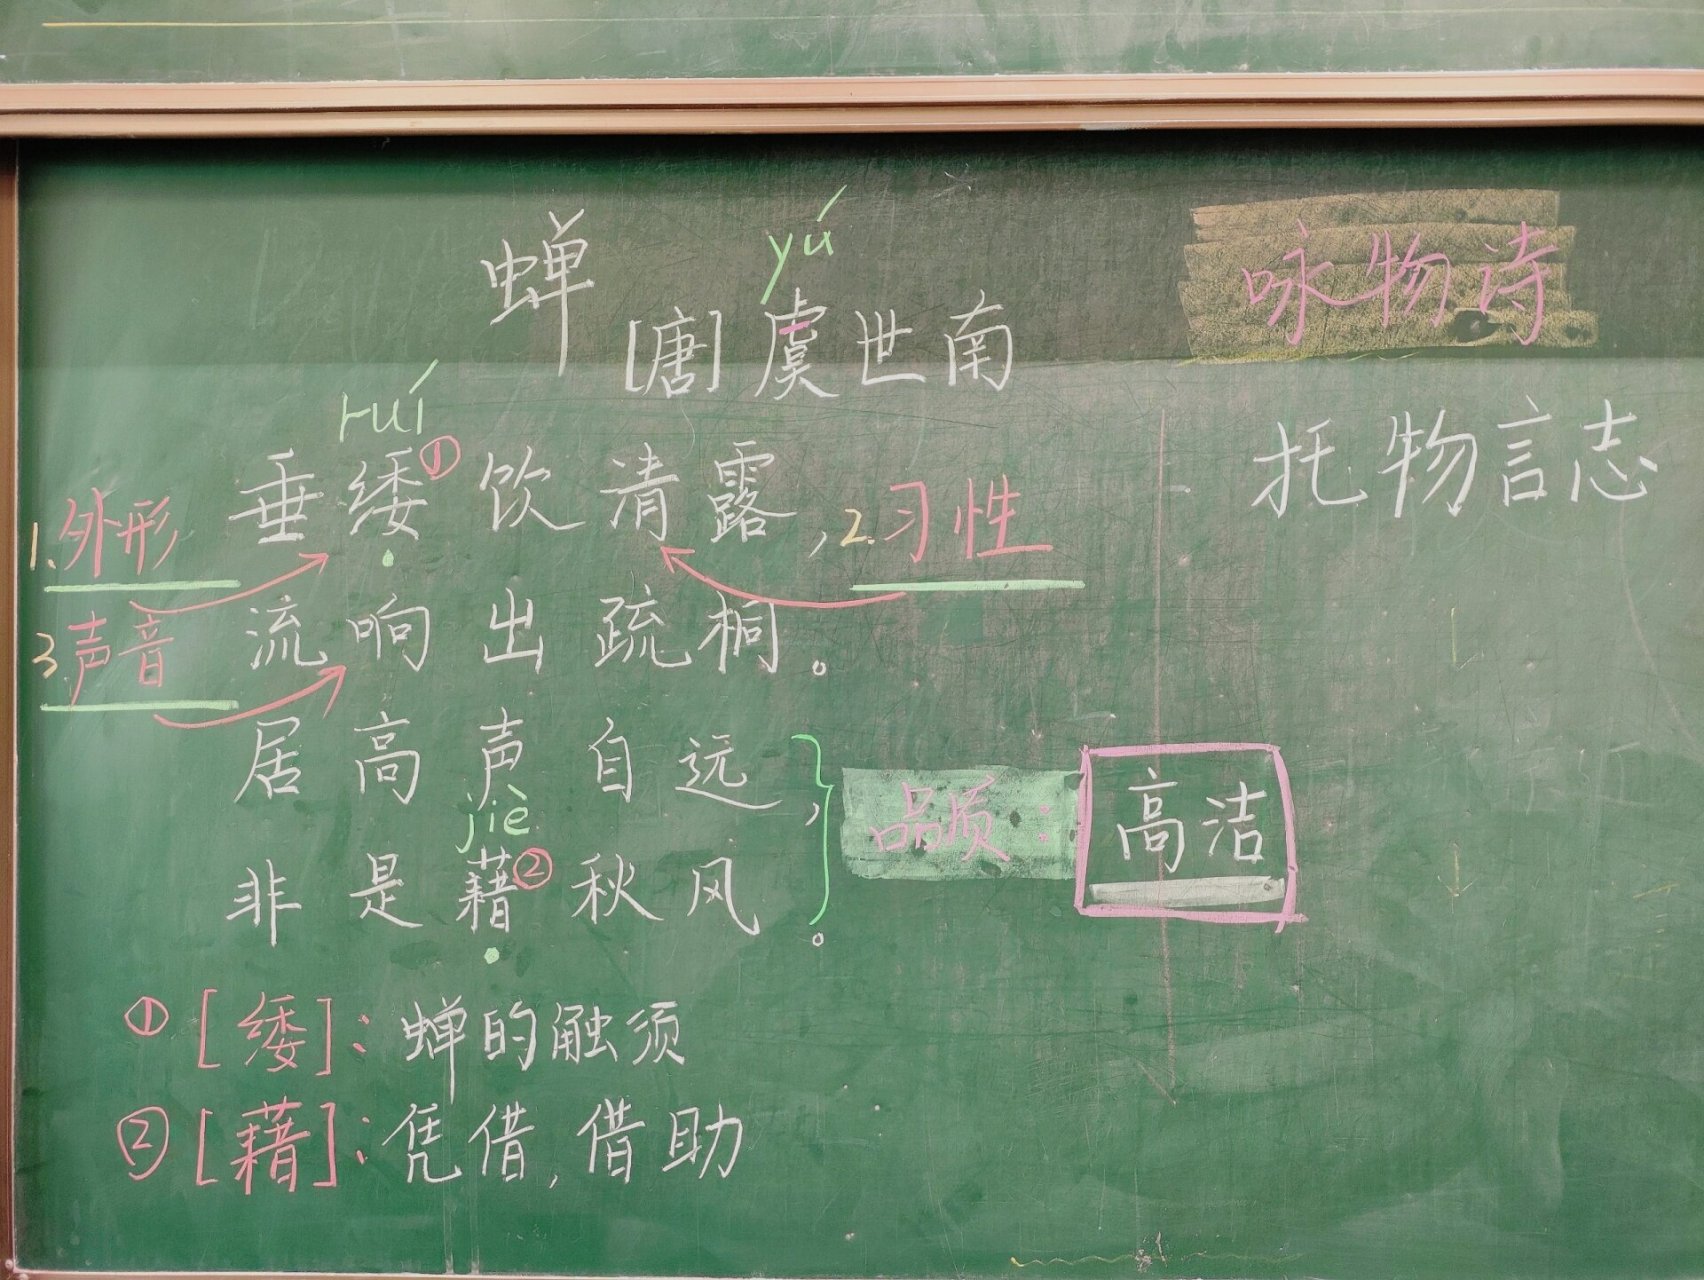 蝉
yú
[唐]虞世南
咏物诗
托物言志
ruí
垂緌①饮清露,
1.外形
2.习性
流响出疏桐。
3.声音
居高声自远,
jiè
非是藉②秋风。
品质:高洁
①[緌]:蝉的触须
②[藉]:凭借,借助